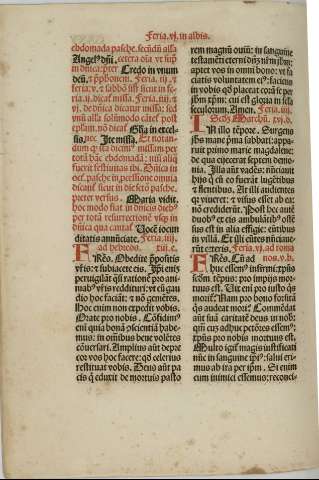 Feria .vj. in albis.
ebdomada pasche. secūdū
Angel⁹ dñi. cetera oīa vt sup̄
in dn̄ica: preter Credo in vnum
deū.
feria.v. sabbō sicut in fe-
ria .ij. dicat̄ missa. Feria .iiij.
vj. de dn̄ica dicatur missa: nisi
q̄ nō dicat̄ Glīa in excel-
sis, nec Ite missa. Et notan-
dum q̄ missa per
totā hāc ebdomadā: nisi aliq̄
fuerit festiuitas ibi. Dn̄ica in
oct̄. pasche in pressionem omnia
dicant̄ sicut in die scto pasche.
preter versus. Maria vidit.
hoc modo fiat in dn̄icis dieb⁹
per totā resurrectionē vsq̄ in
dn̄ica qua cantat̄ Uocē iocun
ditatis annūciate. Feria .iiij.
ad hebreos. xiij.c.
FRēs. Obedite p̄positis
vr̄is: et subiacete eis. Ip̄i eni3
peruigilāt q̄si rationē pro ani-
mab⁹ vr̄is reddituri: vt cū gau
dio hoc faciāt: et nō gemētes.
Hoc enim non expedit vobis.
Orate pro nobis. Cōfidim⁹
eni quia bonā p̄scientiā habe-
mus: in omnibus bene volētes
cōuersari. Amplius aūt depre
cor vos hoc facere: q̄o celerius
restituar vobis. Deus aūt pa
cis q̄ eduxit de mortuis pasto
rem magnū ouiū: in sanguine
testamēti eterni dn̄3 nr̄m ihm̄:
aptet vos in omni bono: vt fa
ciatis voluntatem ei⁹: faciens
in vobis qd̄ placeat corā se per
ihm̄ xp̄m: cui est gloria in secula
seculorum. Amen. Feria .iiij.
Scd̄3 Marchū. xvj.d.
IN illo tēpore. Surgens
ihs̄ mane p̄ma sabbati: appa-
ruit primo marie magdalene:
de qua eiecerat septem demo-
nia. Illa aūt vadēs: nūciauit
hijs q̄ cū eo fuerāt lugētibus
et flentibus. At illi audientes
q̄ viueret: et visus esset ab ea:
nō crediderūt. Post hec autē
duob⁹ ex eis ambulātib⁹ ostē
sus est in alia effigie: eūtibus
in villā. Et illi eūtes nūciaue-
rūt ceteris. Feria .vj. ad roma
nos.v.b.
FRēs. Cū ad
huc essem⁹ infirmi: xp̄us
scdm̄ tēpus: pro impijs mor-
tuus est. Uix eni pro iusto q̄s
morit̄. Nam pro bono forsitā
q̄s audeat mori. Commēdat
aūt suā caritatē deus in nob̄:
qm̄ cū adhuc pctōres essem⁹:
xp̄us pro nobis mortuus est.
Multo igit̄ magis iustificati
nūc in sanguine ip̄i⁹: salui eri-
mus ab ira per ip̄m. Si enim
cum inimici essemus: reconci-